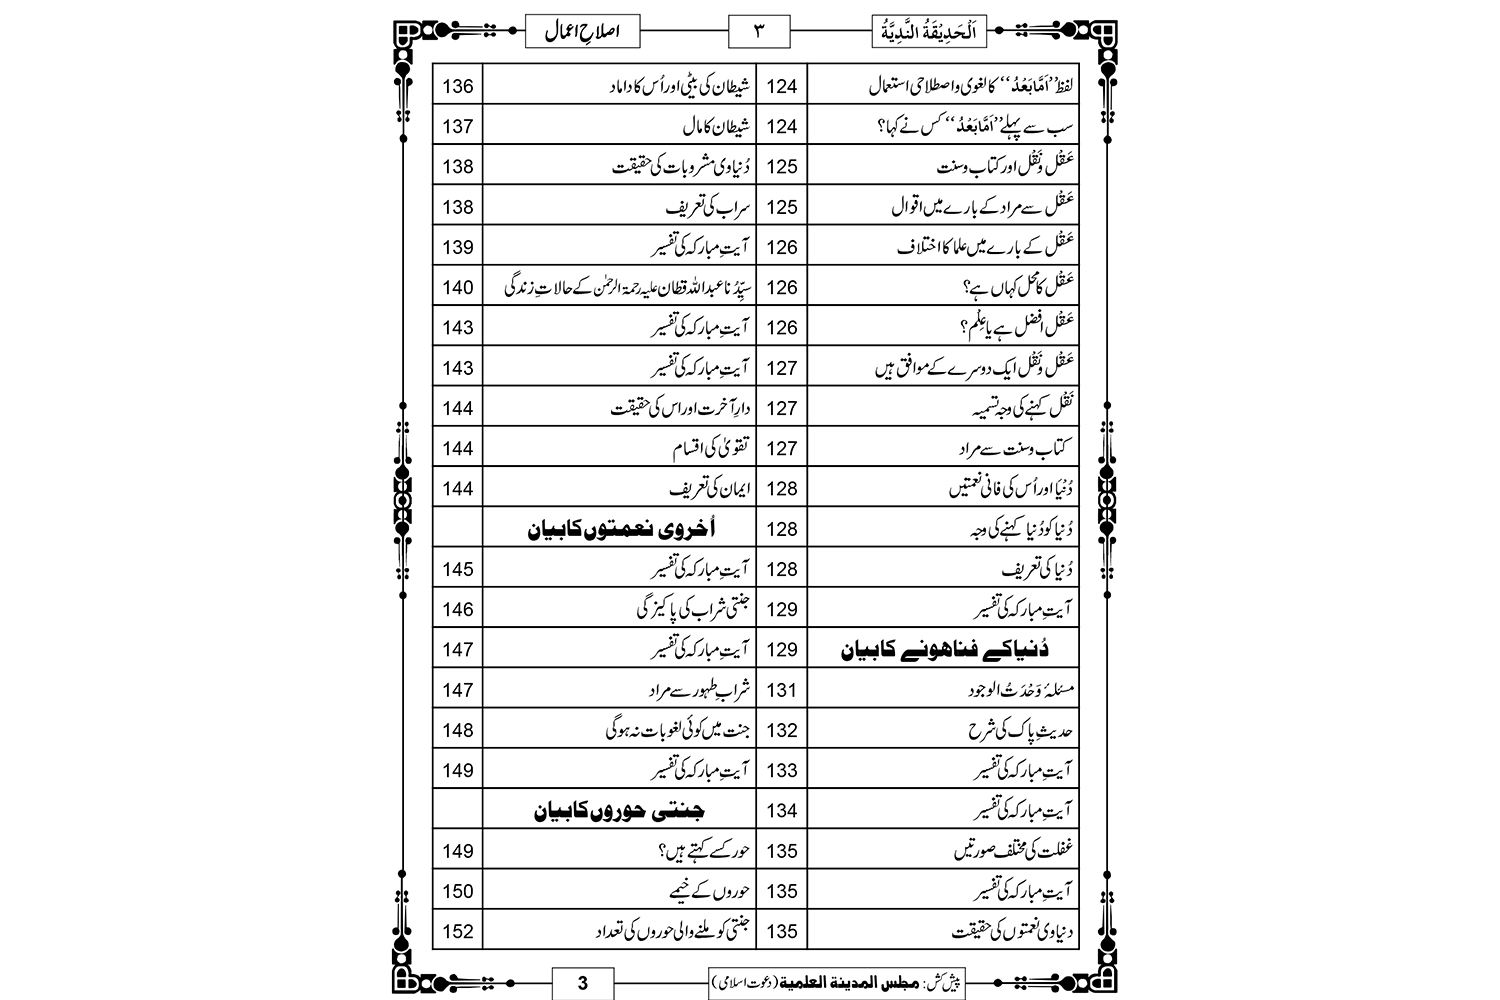 اَلْحَدِیْقَۃُ النَّدِیَّۃُ
٣
اصلاحِ اعمال
لفظ’’اَمَّابَعْدُ‘‘ کا لغوی واصطلاحی استعمال 124
سب سے پہلے’’اَمَّابَعْدُ‘‘ کس نے کہا؟ 124
عَقْل ونَقْل اور کتاب وسنت 125
عَقْل سے مراد کے بارے میں اقوال 125
عَقْل کے بارے میں علما کا اختلاف 126
عَقْل کا محل کہاں ہے؟ 126
عَقْل افضل ہے یا عِلْم؟ 126
عَقْل ونَقْل ایک دوسرے کے موافق ہیں 127
نَقْل کہنے کی وجہ تسمیہ 127
کتاب وسنت سے مراد 127
دُنْیَا اور اُس کی فانی نعمتیں 128
دُنیا کو دُنیا کہنے کی وجہ 128
دُنیا کی تعریف 128
آیتِ مبارکہ کی تفسیر 129
دُنیاکے فناھونے کابیان 129
مسئلۂ وَحْدَتُ الوجود 131
حدیثِ پاک کی شرح 132
آیتِ مبارکہ کی تفسیر 133
آیتِ مبارکہ کی تفسیر 134
غفلت کی مختلف صورتیں 135
آیتِ مبارکہ کی تفسیر 135
دنیاوی نعمتوں کی حقیقت 135
شیطان کی بیٹی اور اُس کا داماد 136
شیطان کا مال 137
دُنیاوی مشروبات کی حقیقت 138
سراب کی تعریف 138
آیتِ مبارکہ کی تفسیر 139
سیِّدُنا عبداللہ قطان علیہ رحمۃ الرحمٰن کے حالاتِ زندگی 140
آیتِ مبارکہ کی تفسیر 143
آیتِ مبارکہ کی تفسیر 143
دارِ آخرت اور اس کی حقیقت 144
تقویٰ کی اقسام 144
ایمان کی تعریف 144
اُخروی نعمتوں کابیان
آیتِ مبارکہ کی تفسیر 145
جنتی شراب کی پاکیزگی 146
آیتِ مبارکہ کی تفسیر 147
شرابِ طہور سے مراد 147
جنت میں کوئی لغو بات نہ ہوگی 148
آیتِ مبارکہ کی تفسیر 149
جنتی حوروں کابیان
حور کسے کہتے ہیں؟ 149
حوروں کے خیمے 150
جنتی کو ملنے والی حوروں کی تعداد 152
پیش کش: مجلس المدینۃ العلمیۃ (دعوت اسلامی)
3